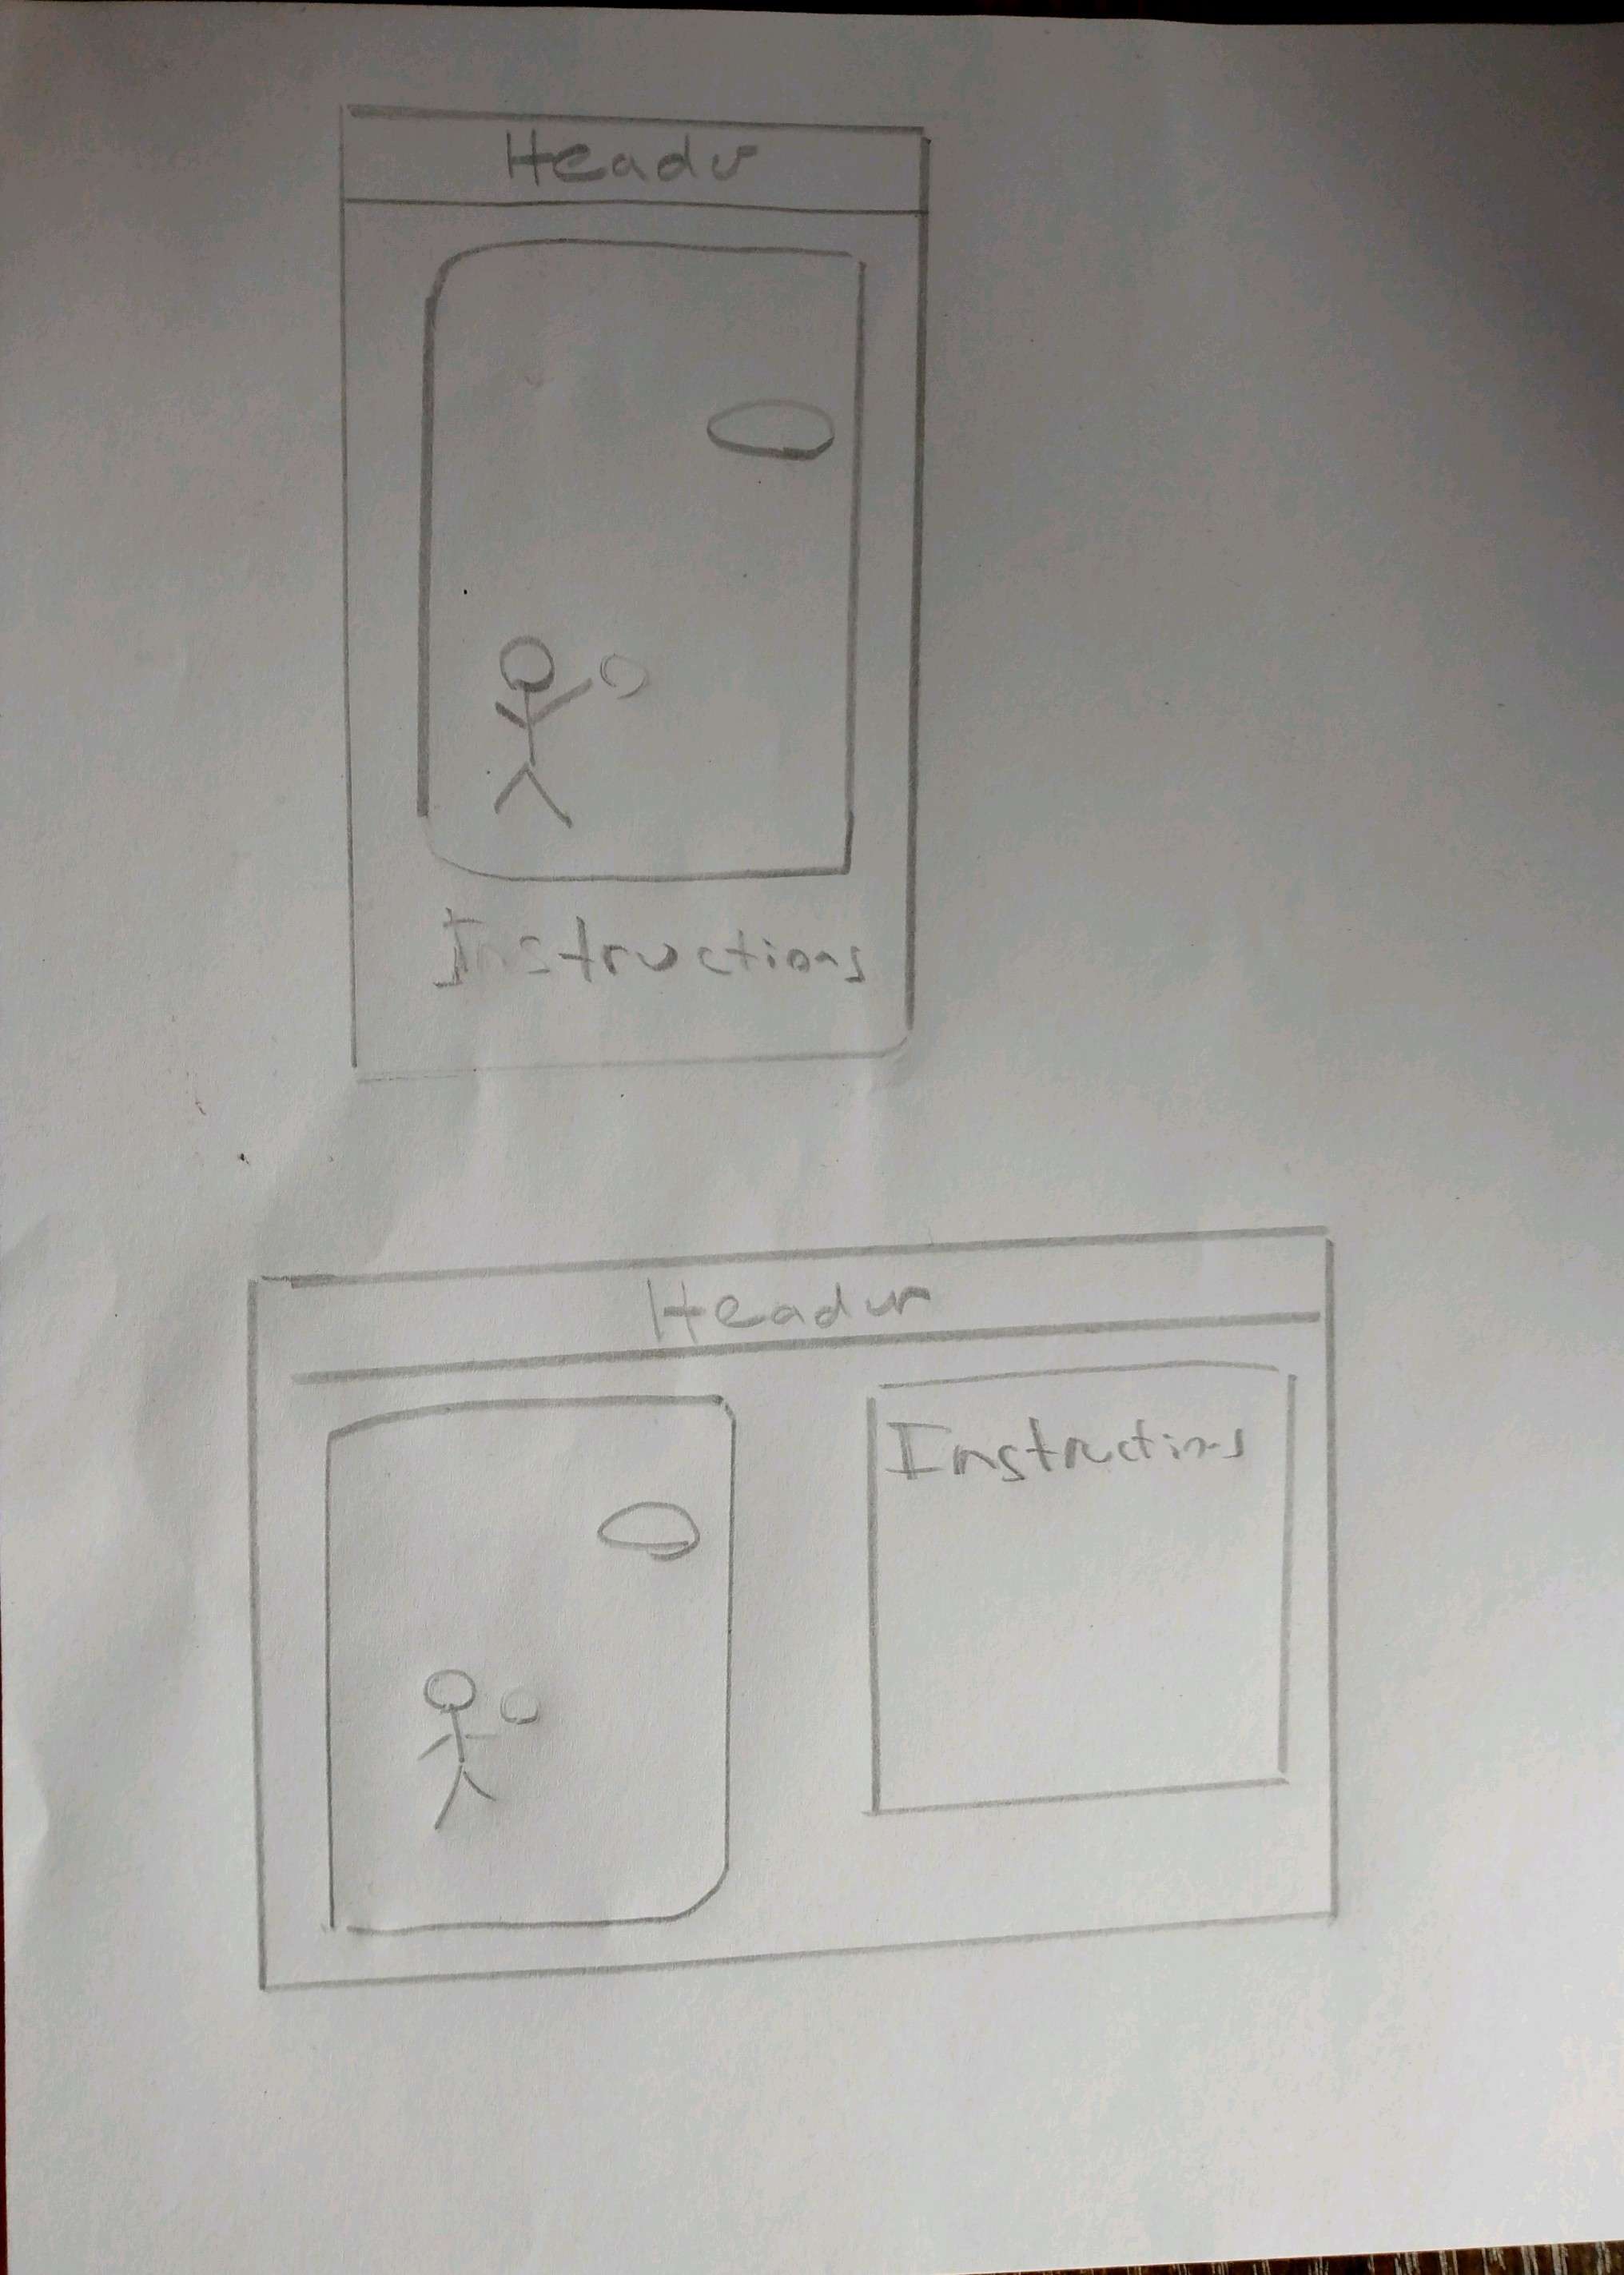 Header
Instructions
Header
Instructions